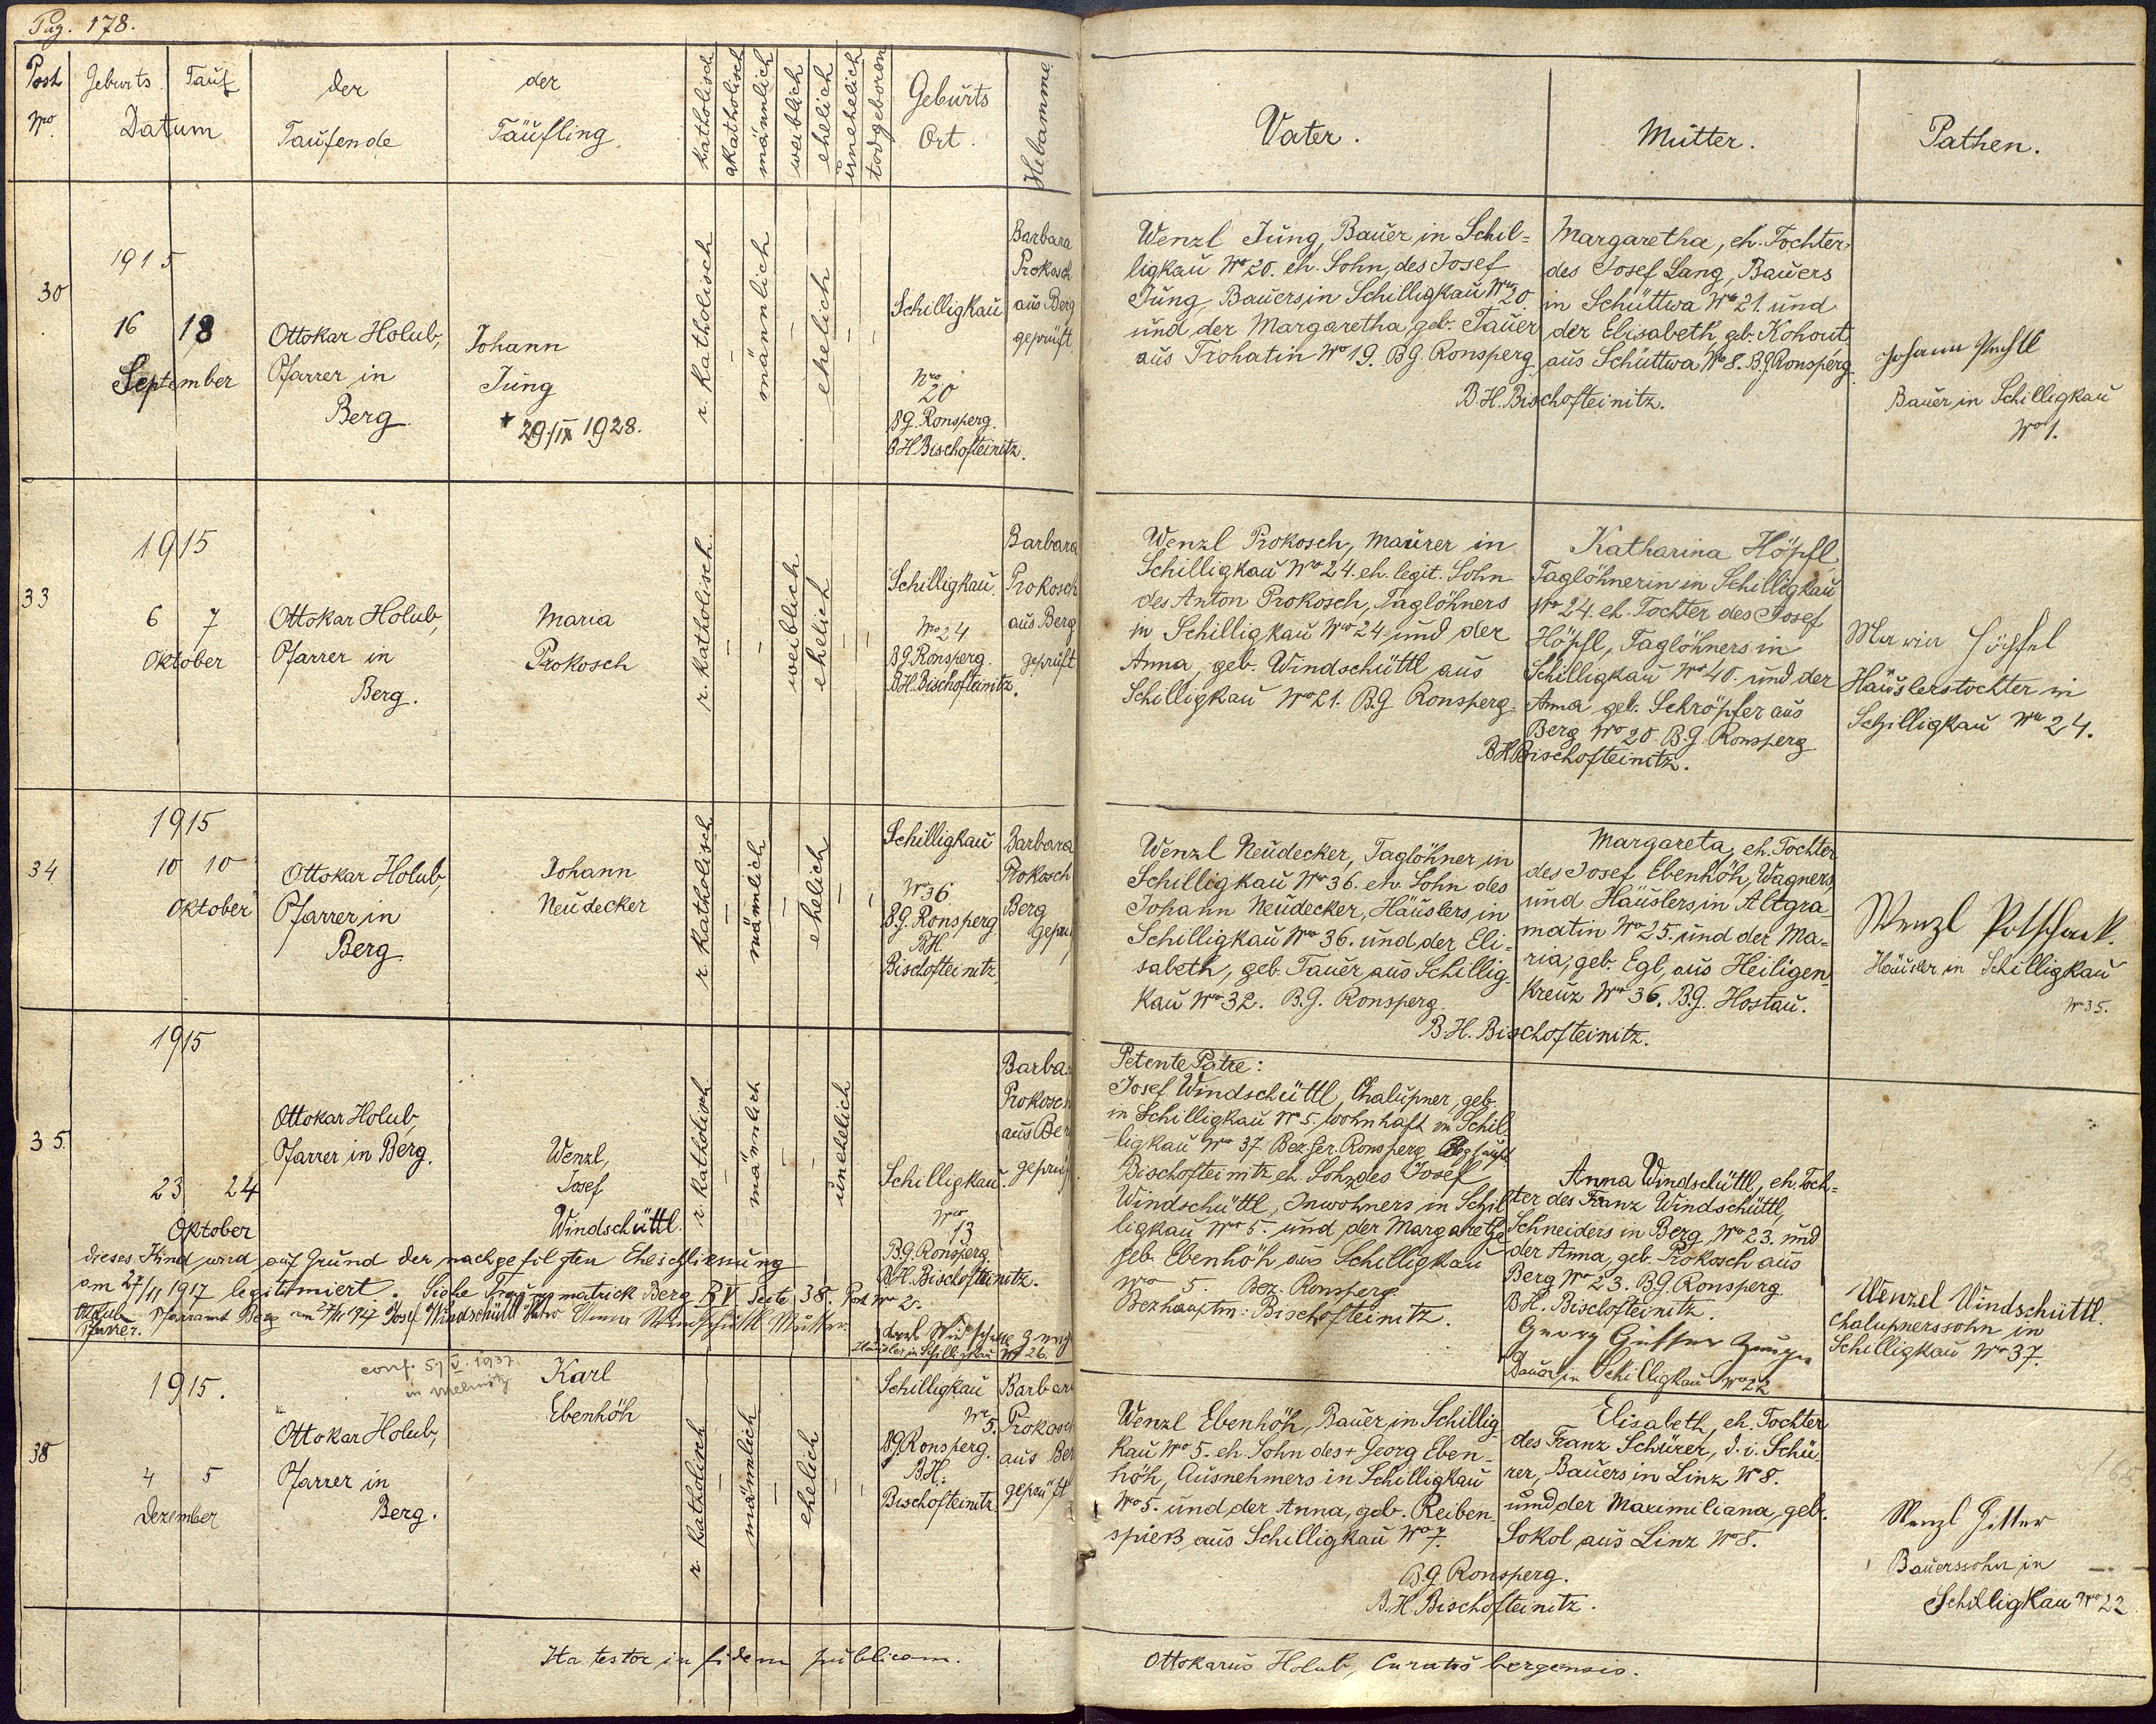 Pag. 178.
Post
Nro.
Geburts
Tauf
Datum
der
Taufende
der
Täufling
katholisch
akatholisch
männlich
weiblich
ehelich
unehelich
todgeboren
Geburts
Ort.
Hebamme
Vater.
Mutter.
Pathen.
30
1915
16 18
September
Ottokar Holub,
Pfarrer in
Berg
Johann
Jung
+ 29./IX 1928.
r. katholisch
männlich
ehelich
Schilligkau
Nro
20
B.G. Ronsperg.
B.H. Bischofteinitz.
Barbara
Prokosch
aus Berg
geprüft.
Wenzl Jung, Bauer in Schil=
ligkau Nro 20. eh. Sohn, des Josef
Jung, Bauers, in Schilligkau Nro 20
und der Margaretha, geb. Tauer
aus Trohatin Nro 19. B.G. Ronsperg
Margaretha, eh. Tochter
des Josef Lang, Bauers
in Schüttwa Nro 21. und
der Elisabeth, gb. Kohout
aus Schüttwa, Nro 8. B.G. Ronsperg.
B.H. Bischofteinitz.
Johann
Bauer in Schilligkau
Nro 1.
33
1915
6 7
Oktober
Ottokar Holub,
Pfarrer in
Berg.
Maria
Prokosch
r. katholisch
weiblich
ehelich
Schilligkau
Nro 24
B.G. Ronsperg.
B.H. Bischofteinitz.
Barbara
Prokosch
aus Berg
geprüft
Wenzl Prokosch, Maurer in
Schilligkau Nro 24. eh. legit. Sohn
des Anton Prokosch, Taglöhners
in Schilligkau Nro 24 und der
Anna, geb. Windschüttl aus
Schilligkau Nro 21. B.G. Ronsperg.
Katharina Höpfl,
Taglöhnerin in Schilligkau
Nro 24. eh. Tochter des Josef
Höpfl, Taglöhners in
Schilligkau Nro 40. und der
Anna geb. Schröpfer aus
Berg Nro 20. B.G. Ronsperg.
B.H. Bischofteinitz.
Häuslerstochter in
Schilligkau Nro 24.
34
1915
10 10
Oktober
Ottokar Holub,
Pfarrer in
Berg.
Johann
Neudecker
r. katholisch
männlich
ehelich
Schilligkau
Nro 36
B.G. Ronsperg
B.H.
Bischofteinitz
Barbara
Prokosch
Berg
Wenzl Neudecker, Taglöhner in
Schilligkau Nro 36. eh. Sohn des
Johann Neudecker, Häuslers, in
Schilligkau Nro 36. und der Eli=
sabeth, geb. Tauer aus Schillig-
kau Nro 32. B.G. Ronsperg.
Margareta, eh. Tochter
des Josef Ebenhöh, Wagners,
und Häuslers, in Altgra-
matin Nro 25. und der Ma=
ria, geb. Egl, aus Heiligen-
kreuz Nro 36. B.G. Hostau.
B.H. Bischofteinitz.
Wenzl Potschack.
Häusler in Schilligkau
Nro 35.
35.
1915
23 24
Oktober
Ottokar Holub,
Pfarrer in Berg.
Wenzl,
Josef
Windschüttl.
r. katholisch
männlich
unehelich
Schilligkau.
Nro
13
B.G. Ronsperg
B.H. Bischofteinitz.
Barba
Prokosch
aus Ber
geprüf
Dieses Kind wird auf Grund der nachgefolgten Eheschliessung
am 27/11 1917 legitimiert. Siehe Trauungsmatrick Berg B V Seite 38. Post Nro 2.
Pfarrer. Pfarramt Berg am 27/11 1917 Josef Windschüttl Vater Anna Windschüttl Mutter.
Häusler in Schilligkau Nro 26.
Petente Patre:
Josef Windschüttl, Chalupner, geb.
in Schilligkau Nro 5. wohnhaft in Schil
ligkau Nro 37. Bez. Ger. Ronsperg
Bischofteinitz, eh. Sohn des Josef
Windschüttl, Inwohners in Schil
ligkau Nro 5. und der Margarethe
geb. Ebenhöh aus Schilligkau
Nro 5. Bez. Ronsperg.
Bezhauptm: Bischofteinitz.
Anna Windschüttl, eh. Toch=
ter des Franz Windschüttl,
Schneiders in Berg, Nro 23. und
der Anna, geb. Prokosch aus
Berg Nro 23. B.G. Ronsperg.
B.H. Bischofteinitz.
Georg Zeuge
Bauer in Schilligkau Nro 22
Wenzel Windschüttl.
Chalupnerssohn in
Schilligkau Nro 37.
38
1915.
4 5
Dezember
conf. 5/V. 1937.
in
Ottokar Holub,
Pfarrer in
Berg.
Karl
Ebenhöh
r. katholisch
männlich
ehelich
Schilligkau
Nro 5.
B.G. Ronsperg.
B.H.
Bischofteinitz.
Barbar
Prokosch
aus Ber
geprüft
Wenzl Ebenhöh, Bauer, in Schillig-
kau Nro 5. eh. Sohn des + Georg Eben-
höh, Ausnehmers in Schilligkau
Nro 5. und der Anna, geb. Reiben-
spieß aus Schilligkau Nro 7.
Elisabeth, eh. Tochter
des Franz Schürer, d. i. Schü
rer, Bauers in Linz Nro 8.
und der Maximiliana, geb.
Sokol aus Linz Nro 8.
B.G. Ronsperg.
B.H. Bischofteinitz.
Wenzl
Bauerssohn in
Schilligkau Nro 22
Ita testor in fidem publicam.
Ottokarus Holub, Curatus bergensis.